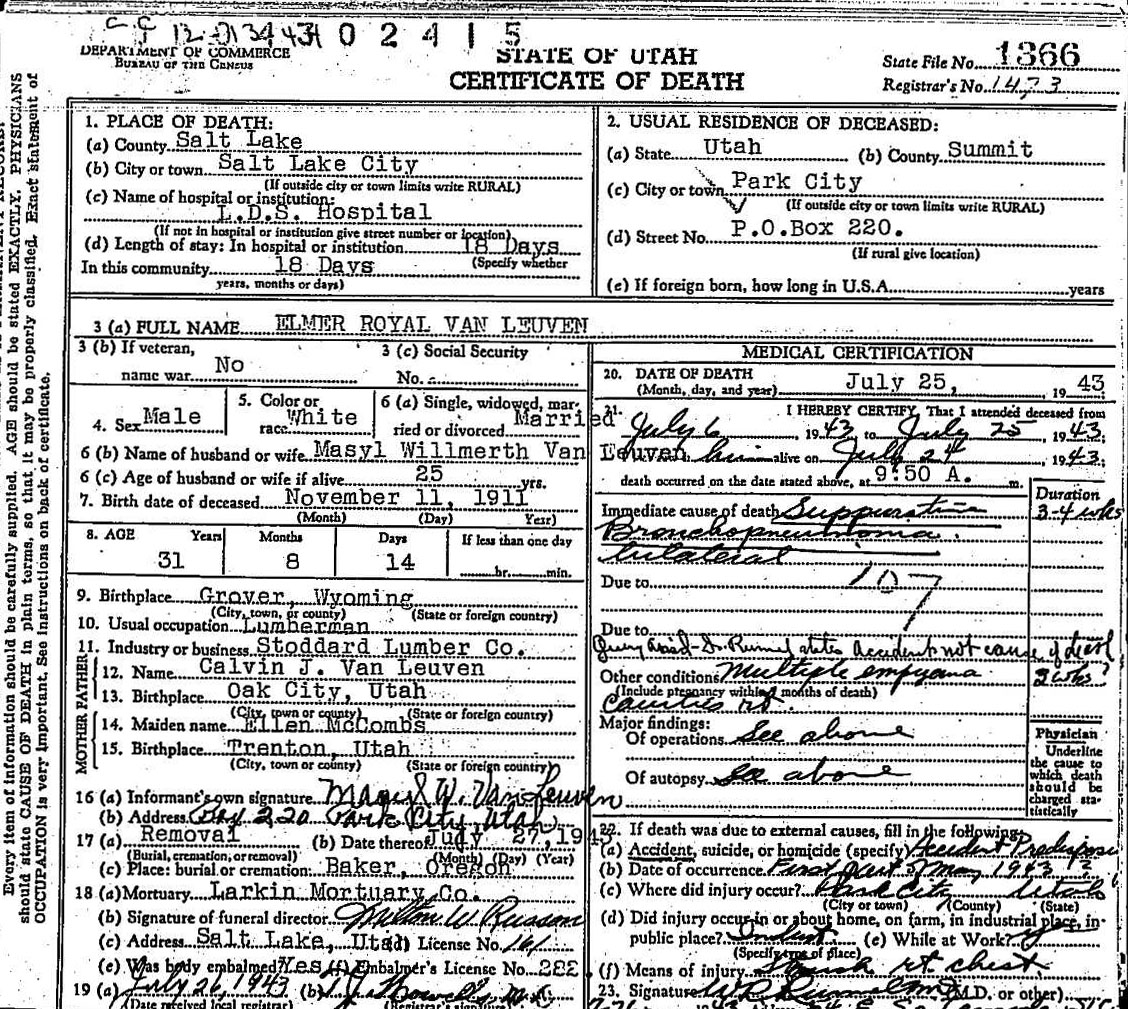 C C 12-0134431 0 2 4 1 5
DEPARTMENT OF COMMERCE
BUREAU OF THE CENSUS
STATE OF UTAH
CERTIFICATE OF DEATH
State File No. 1366
Registrar's No. 1473
Every item of information should be carefully supplied. AGE should be stated EXACTLY. PHYSICIANS
should state CAUSE OF DEATH in plain terms, so that it may be properly classified. Exact statement of
OCCUPATION is very important. See instructions on back of certificate.
1. PLACE OF DEATH:
(a) County Salt Lake
(b) City or town Salt Lake City
(If outside city or town limits write RURAL)
(c) Name of hospital or institution:
L.D.S. Hospital
(If not in hospital or institution give street number or location)
(d) Length of stay: In hospital or institution 18 Days
(Specify whether
In this community 18 Days
years, months or days)
2. USUAL RESIDENCE OF DECEASED:
(a) State Utah (b) County Summit
(c) City or town Park City
(If outside city or town limits write RURAL)
(d) Street No. P.O.Box 220.
(If rural give location)
(e) If foreign born, how long in U.S.A. years
3 (a) FULL NAME ELMER ROYAL VAN LEUVEN
3 (b) If veteran,
name war. No
3 (c) Social Security
No.
4. Sex Male
5. Color or
race White
6 (a) Single, widowed, mar-
ried or divorced Married
6 (b) Name of husband or wife Masyl Willmerth Van Leuven
6 (c) Age of husband or wife if alive 25 yrs.
7. Birth date of deceased November 11, 1911
(Month) (Day) Year)
8. AGE Years Months Days If less than one day
31 8 14 hr. min.
9. Birthplace Grover, Wyoming
(City, town, or county) (State or foreign country)
10. Usual occupation Lumberman
11. Industry or business Stoddard Lumber Co.
FATHER
12. Name Calvin J. Van Leuven
13. Birthplace Oak City, Utah
(City, town or county) (State or foreign country)
MOTHER
14. Maiden name Ellen McCombs
15. Birthplace Trenton, Utah
(City, town or county) (State or foreign country)
16 (a) Informant's own signature Masyl W. Van Leuven
(b) Address Box 220 Park City, Utah
17 (a) Removal (b) Date thereof July 27, 1943
(Burial, cremation, or removal) (Month) (Day) (Year)
(c) Place: burial or cremation: Baker, Oregon
18 (a) Mortuary Larkin Mortuary Co.
(b) Signature of funeral director
(c) Address Salt Lake, Utah (d) License No. 161
(e) Was body embalmed? Yes (f) Embalmer's License No. 282
19 (a) July 26, 1943 (b)
(Date received local registrar) (Registrar's signature)
MEDICAL CERTIFICATION
20. DATE OF DEATH
(Month, day, and year) July 25, 1943
21. I HEREBY CERTIFY, That I attended deceased from
July 6, 1943 to July 25, 1943;
him alive on July 24, 1943;
death occurred on the date stated above, at 9:50 A. m.
Duration
Immediate cause of death Suppurative 3-4 wks
Bronchopneumonia.
bilateral
Due to 107
Due to
states Accident not cause of death
Other conditions Multiple empyema 2 wks?
(Include pregnancy within 3 months of death)
Cavities rt.
Major findings:
Of operations See above
Of autopsy See above
Physician
Underline
the cause to
which death
should be
charged sta-
tistically
22. If death was due to external causes, fill in the following:
(a) Accident, suicide, or homicide (specify) Accident
(b) Date of occurrence First part of May 1943 ?
(c) Where did injury occur? Park City
(City or town) (County) (State)
(d) Did injury occur in or about home, on farm, in industrial place, in-
public place? Indust. (e) While at Work?
(Specify type of place)
(f) Means of injury Struck rt chest.
23. Signature (M.D. or other)